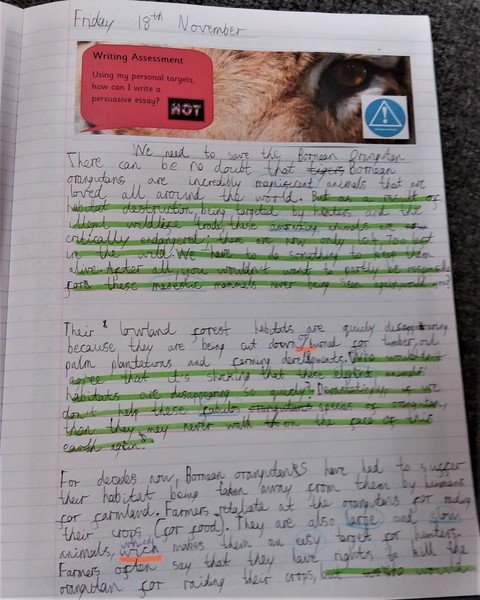 Friday 18th November
Writing Assessment
Using my personal targets,
how can I write a
persuasive essay?
HOT
We need to save the Bornean Orangutan
There can be no doubt that tigers Bornean
orangutans are incredibly magnificent animals that are
loved all around the world. But as a result of
habitat destruction, being targeted by hunters and the
illegal wildlife trade, these amazing animals are now
critically endangered; there are now only left
in the wild. We have to do something to keep them
alive. After all, you wouldn't want to partly be responsible
for these majestic mammals never being seen again, would you?
Their lowland forest habitats are quicly
because they are being cut down, burned for timber, oil
palm plantations and farming developments. Who wouldn't
agree that it's shocking that these animals'
habitats are disappearing so quicly? Devastatingly, if we
don't help these orangutans species of orangutan,
then they may never walk on the face of this
earth again.
For decades now, Bornean orangutans have had to suffer
their habitat being taken away from them by humans
for farmland. Farmers at the orangutans for raiding
their crops (for food). They are also large and slow
which
animals, wich makes them an easy target for hunters.
Farmers often say that they have rights to kill the
orangutan for raiding their crops, but would